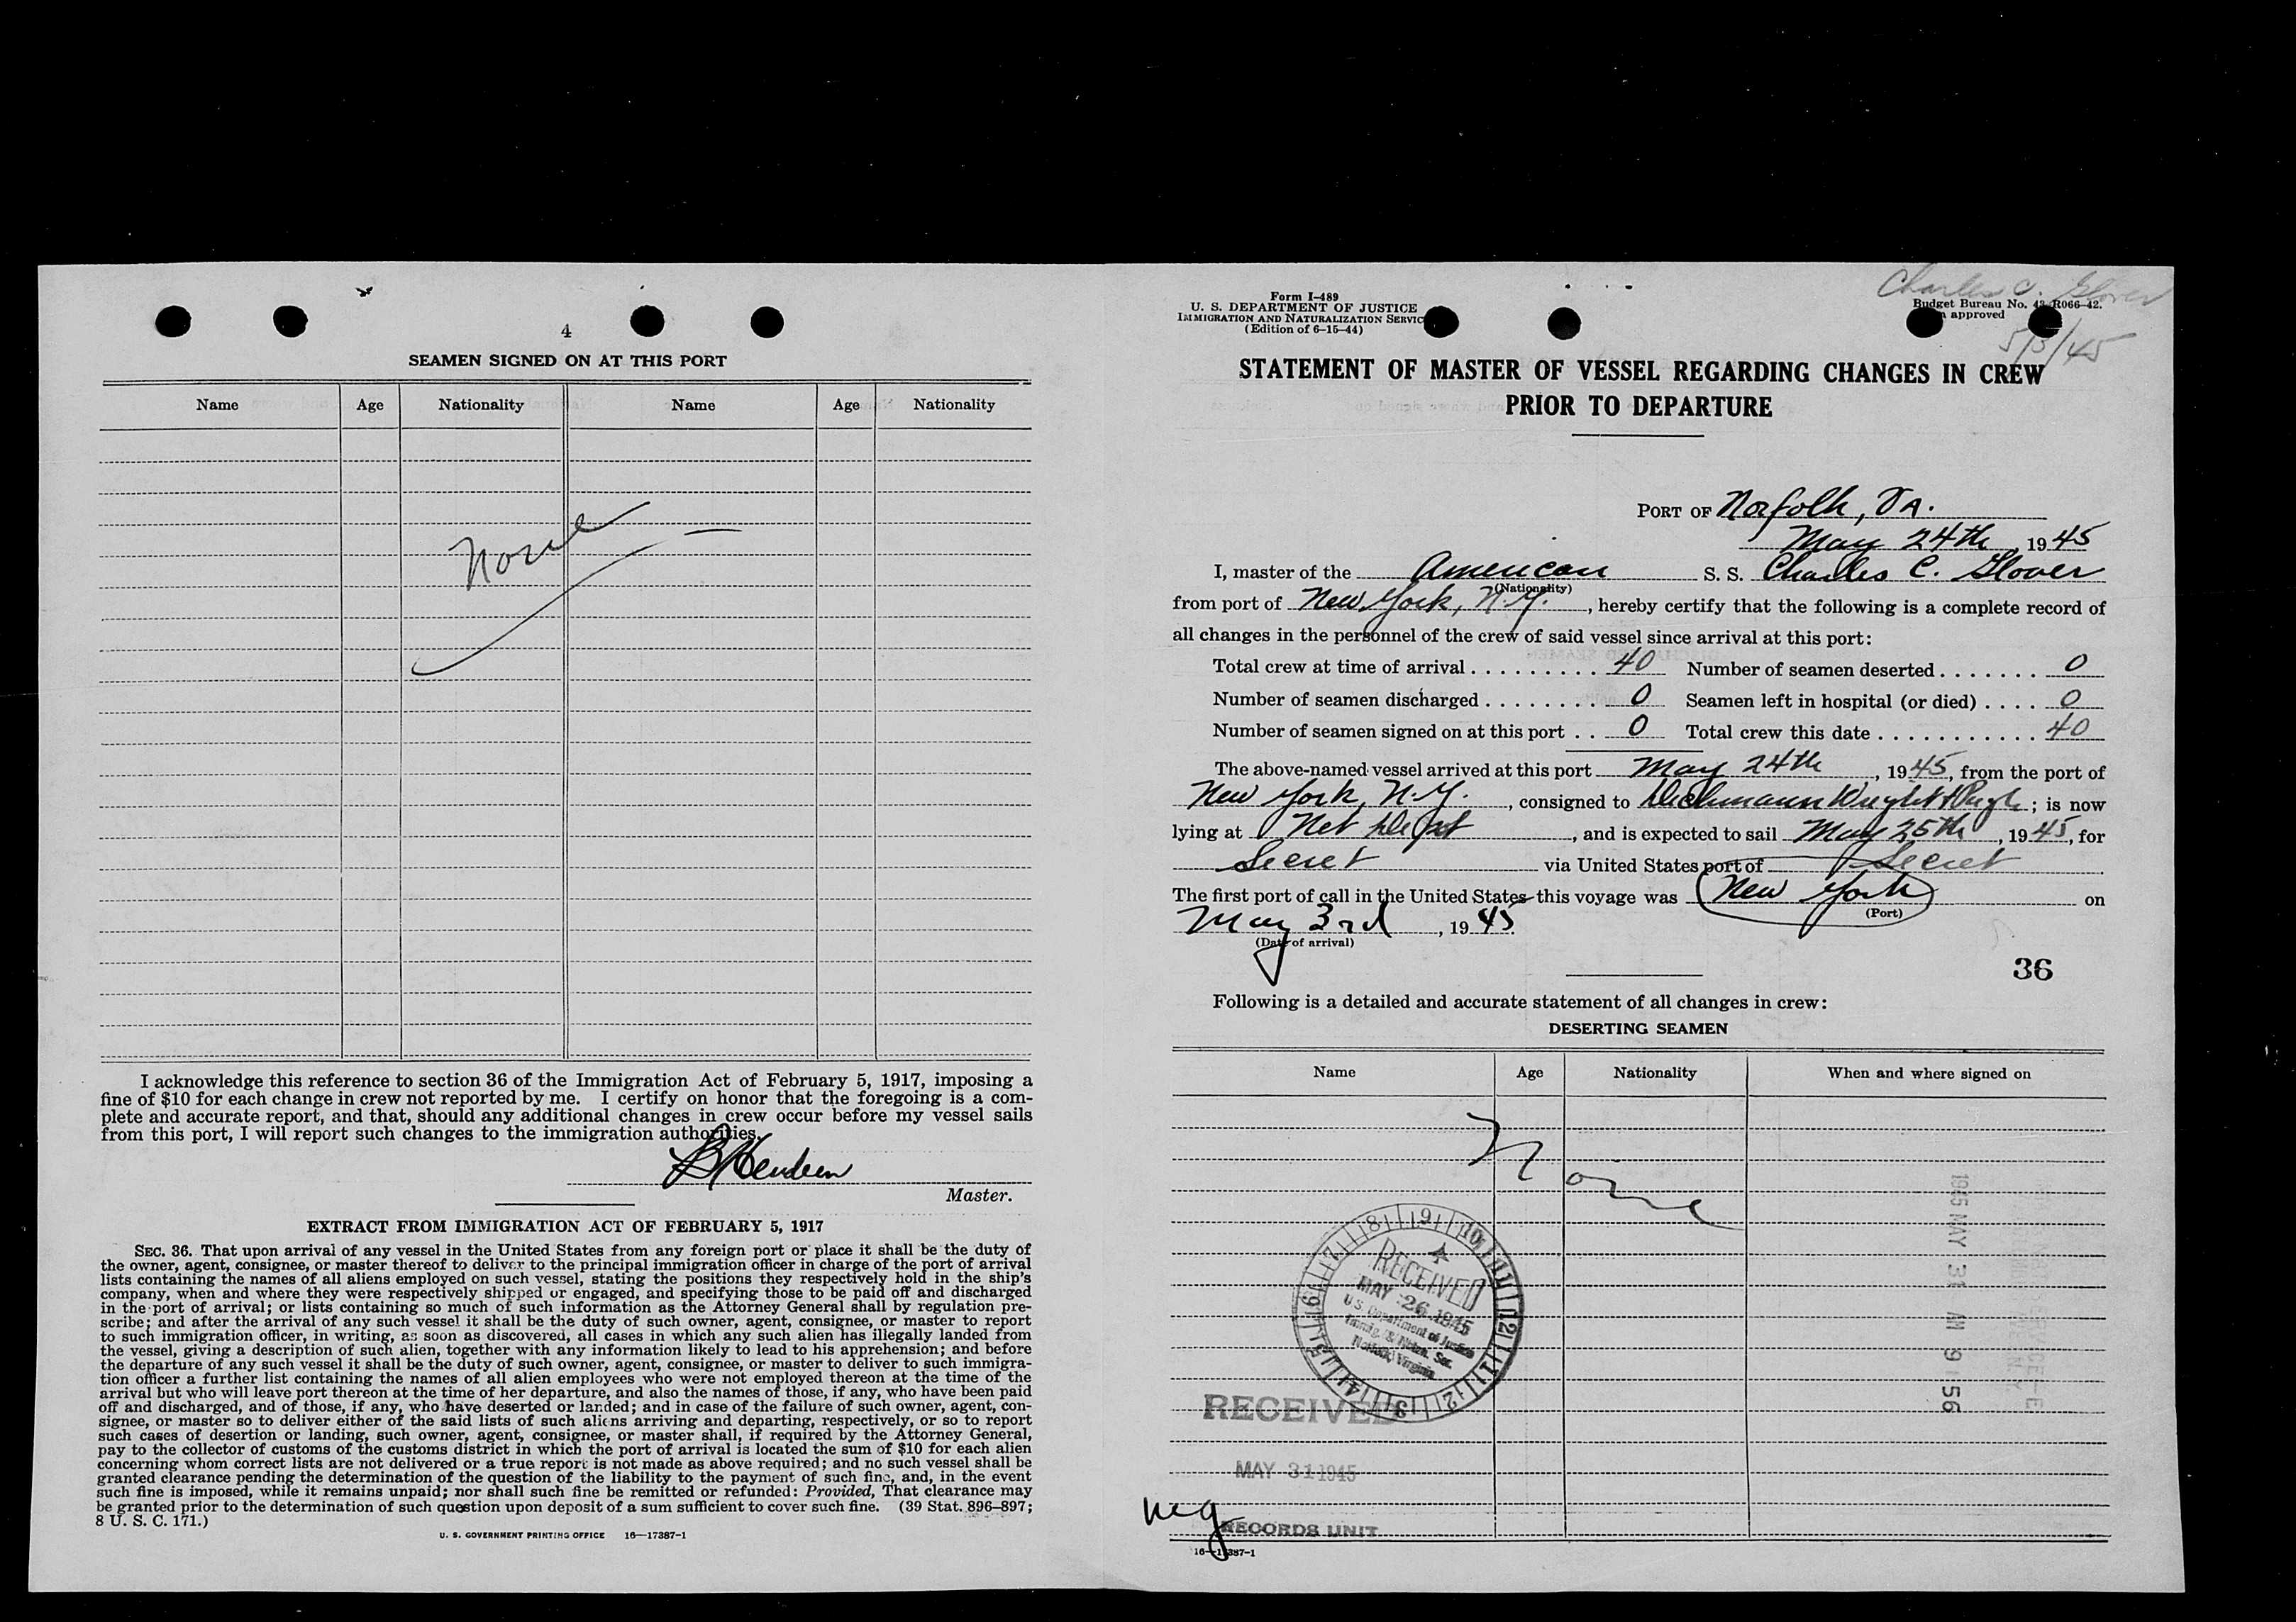 4
SEAMEN SIGNED ON AT THIS PORT
Name Age Nationality Name Age Nationality
None
I acknowledge this reference to section 36 of the Immigration Act of February 5, 1917, imposing a
fine of $10 for each change in crew not reported by me. I certify on honor that the foregoing is a com-
plete and accurate report, and that, should any additional changes in crew occur before my vessel sails
from this port, I will report such changes to the immigration authorities.
Master.
EXTRACT FROM IMMIGRATION ACT OF FEBRUARY 5, 1917
SEC. 36. That upon arrival of any vessel in the United States from any foreign port or place it shall be the duty of
the owner, agent, consignee, or master thereof to deliver to the principal immigration officer in charge of the port of arrival
lists containing the names of all aliens employed on such vessel, stating the positions they respectively hold in the ship's
company, when and where they were respectively shipped or engaged, and specifying those to be paid off and discharged
in the port of arrival; or lists containing so much of such information as the Attorney General shall by regulation pre-
scribe; and after the arrival of any such vessel it shall be the duty of such owner, agent, consignee, or master to report
to such immigration officer, in writing, as soon as discovered, all cases in which any such alien has illegally landed from
the vessel, giving a description of such alien, together with any information likely to lead to his apprehension; and before
the departure of any such vessel it shall be the duty of such owner, agent, consignee, or master to deliver to such immigra-
tion officer a further list containing the names of all alien employees who were not employed thereon at the time of the
arrival but who will leave port thereon at the time of her departure, and also the names of those, if any, who have been paid
off and discharged, and of those, if any, who have deserted or landed; and in case of the failure of such owner, agent, con-
signee, or master so to deliver either of the said lists of such aliens arriving and departing, respectively, or so to report
such cases of desertion or landing, such owner, agent, consignee, or master shall, if required by the Attorney General,
pay to the collector of customs of the customs district in which the port of arrival is located the sum of $10 for each alien
concerning whom correct lists are not delivered or a true report is not made as above required; and no such vessel shall be
granted clearance pending the determination of the question of the liability to the payment of such fine, and, in the event
such fine is imposed, while it remains unpaid; nor shall such fine be remitted or refunded: Provided, That clearance may
be granted prior to the determination of such question upon deposit of a sum sufficient to cover such fine. (39 Stat. 896–897;
8 U. S. C. 171.)
U. S. GOVERNMENT PRINTING OFFICE 16—17387-1
Charles C. Glover
5/3/45
Form I-489
U. S. DEPARTMENT OF JUSTICE
IMMIGRATION AND NATURALIZATION SERVIC
(Edition of 6-15-44)
Budget Bureau No. 43-R066-42.
approved
STATEMENT OF MASTER OF VESSEL REGARDING CHANGES IN CREW
PRIOR TO DEPARTURE
PORT OF Norfolk, VA.
May 24th, 1945
I, master of the American S. S. Charles C. Glover
(Nationality)
from port of New York, N.Y., hereby certify that the following is a complete record of
all changes in the personnel of the crew of said vessel since arrival at this port:
Total crew at time of arrival . . . . . . . . . 40 Number of seamen deserted . . . . . . . 0
Number of seamen discharged . . . . . . . . 0 Seamen left in hospital (or died) . . . . 0
Number of seamen signed on at this port . . 0 Total crew this date . . . . . . . . . . . 40
The above-named vessel arrived at this port May 24th, 1945, from the port of
New York, N.Y., consigned to Dichmann Wright & Pugh; is now
lying at Net Depot, and is expected to sail May 25th, 1945, for
Secret via United States port of Secret
The first port of call in the United States this voyage was New York on
(Port)
May 3rd, 1945.
(Date of arrival)
36
Following is a detailed and accurate statement of all changes in crew:
DESERTING SEAMEN
Name Age Nationality When and where signed on
None
RECEIVED
MAY 26 1945
U.S. Department of Justice
Immig. & Natzn. Ser.
Norfolk, Virginia
1945 MAY 31 AM 9 56
RECEIVED
MAY 31 1945
RECORDS UNIT
16—17387-1